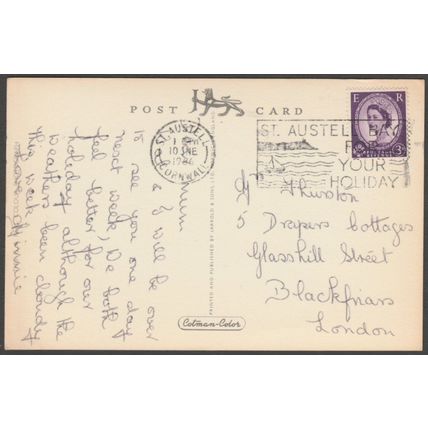 POST CARD
E R
3D
ST. AUSTELL
10 JNE
CORNWALL
ST. AUSTELL BAY
FOR
YOUR
HOLIDAY
Thurston
5 Drapers Cottages
Glasshill Street
Blackfriars
London
Mum
& I will be over
to see you one day
next week, We both
feel better for our
holiday although the
weathers been cloudy
this week
Minnie
PRINTED AND PUBLISHED BY JARROLD & SONS LTD
Cotman-Color